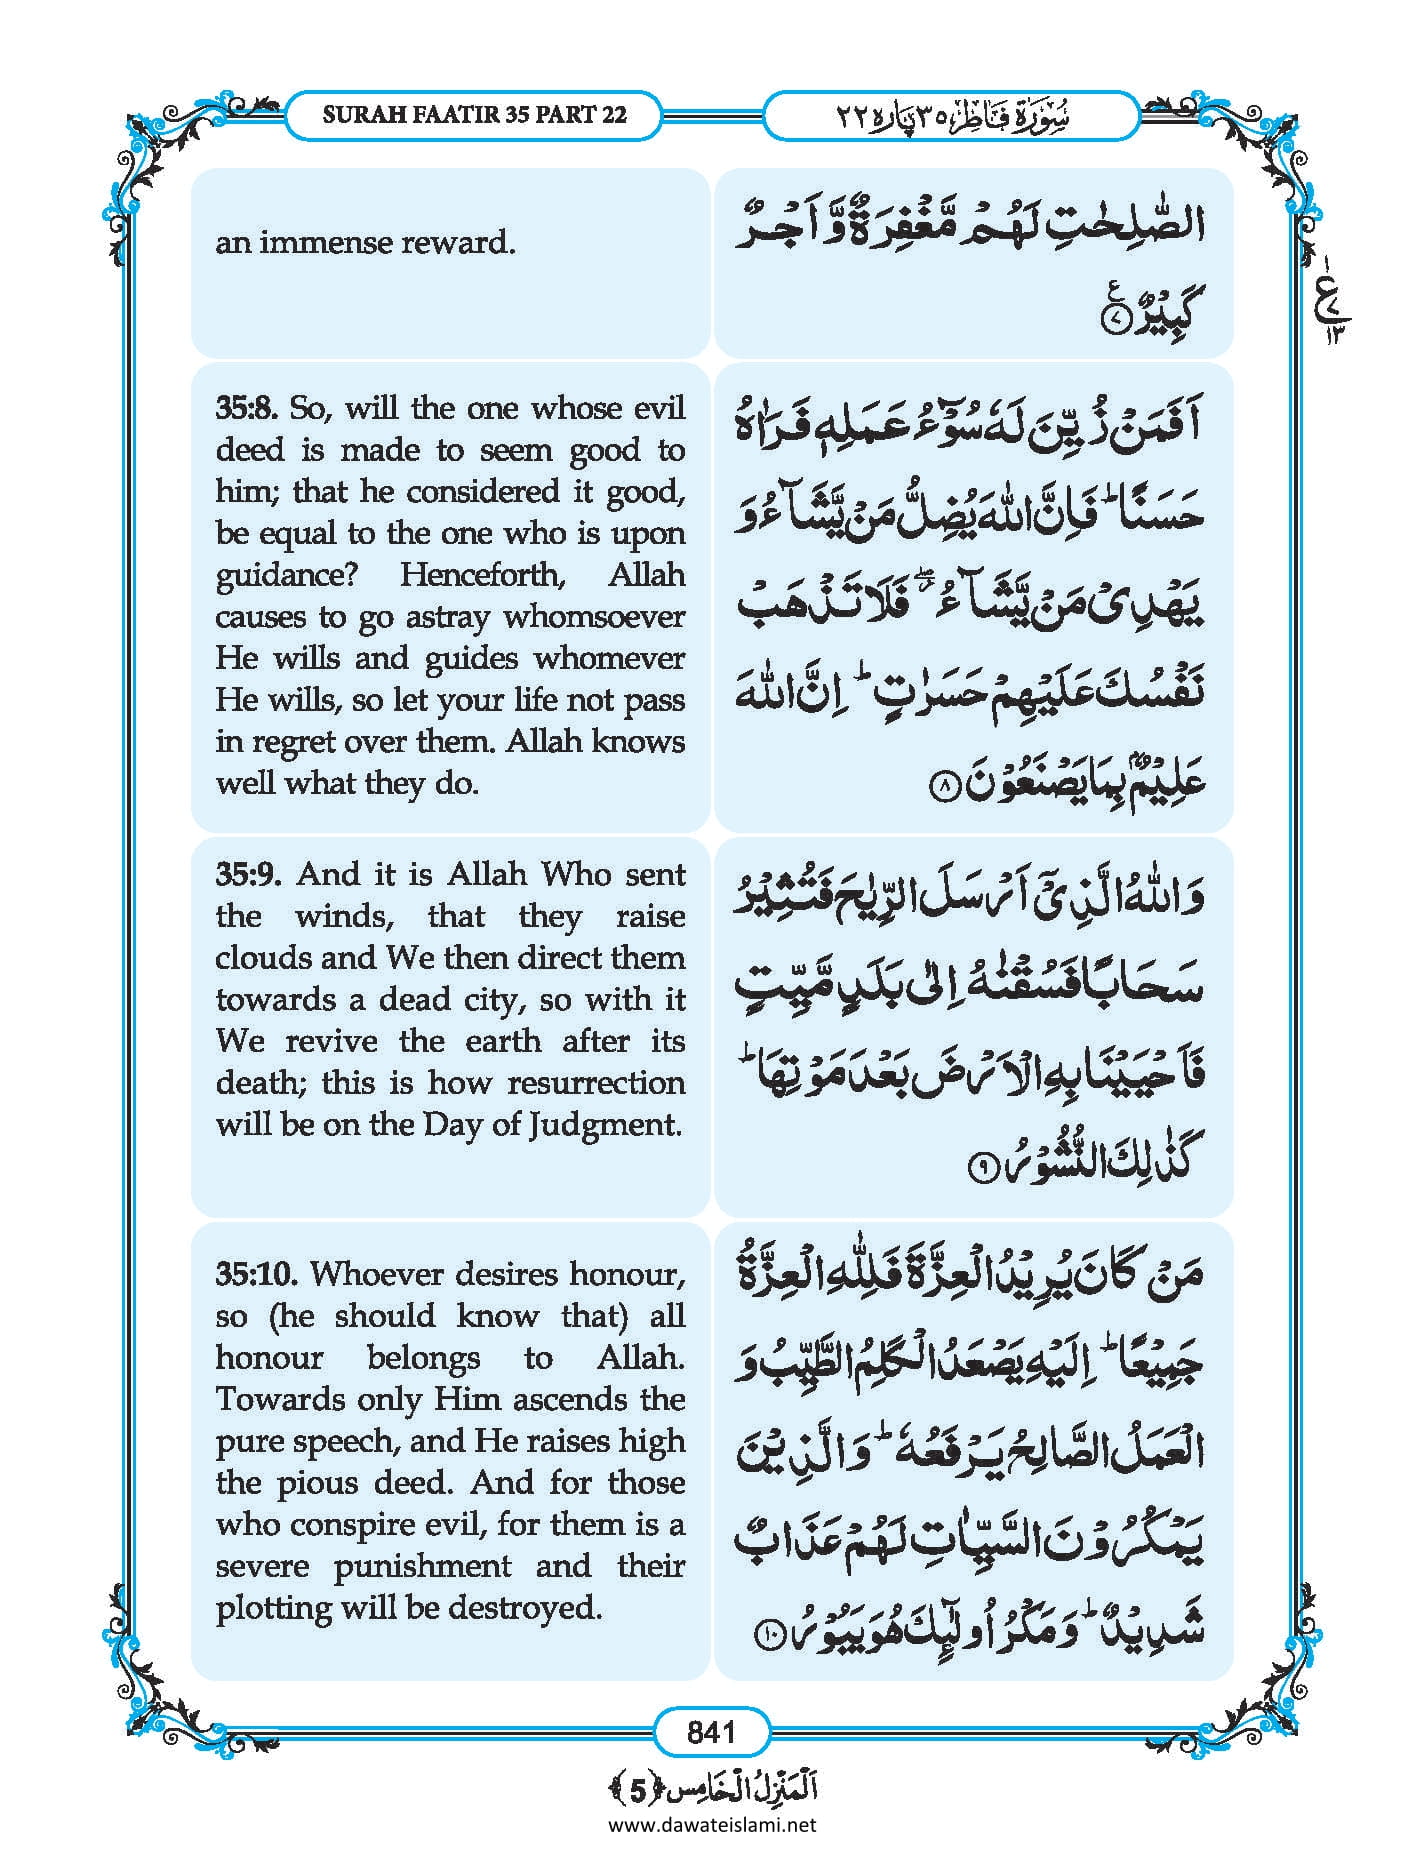 SURAH FAATIR 35 PART 22
سُوۡرَۃُ فَاطِر ۳۵ پارہ ۲۲
an immense reward.
الصّٰلِحٰتِ لَهُمْ مَّغْفِرَةٌ وَّ اَجْرٌ
كَبِیْرٌ۠ ﴿۷﴾
ع
۱
ع
۷
۱۳
35:8. So, will the one whose evil
deed is made to seem good to
him; that he considered it good,
be equal to the one who is upon
guidance? Henceforth, Allah
causes to go astray whomsoever
He wills and guides whomever
He wills, so let your life not pass
in regret over them. Allah knows
well what they do.
اَفَمَنْ زُیِّنَ لَهٗ سُوْٓءُ عَمَلِهٖ فَرَاٰهُ
حَسَنًاؕ فَاِنَّ اللهَ یُضِلُّ مَنْ یَّشَآءُ وَ
یَهْدِیْ مَنْ یَّشَآءُ ۖ٘ فَلَا تَذْهَبْ
نَفْسُكَ عَلَیْهِمْ حَسَرٰتٍؕ اِنَّ اللهَ
عَلِیْمٌۢ بِمَا یَصْنَعُوْنَ ﴿۸﴾
35:9. And it is Allah Who sent
the winds, that they raise
clouds and We then direct them
towards a dead city, so with it
We revive the earth after its
death; this is how resurrection
will be on the Day of Judgment.
وَ اللهُ الَّذِیْۤ اَرْسَلَ الرِّیٰحَ فَتُثِیْرُ
سَحَابًا فَسُقْنٰهُ اِلٰى بَلَدٍ مَّیِّتٍ
فَاَحْیَیْنَا بِهِ الْاَرْضَ بَعْدَ مَوْتِهَاؕ
كَذٰلِكَ النُّشُوْرُ ﴿۹﴾
35:10. Whoever desires honour,
so (he should know that) all
honour belongs to Allah.
Towards only Him ascends the
pure speech, and He raises high
the pious deed. And for those
who conspire evil, for them is a
severe punishment and their
plotting will be destroyed.
مَنْ كَانَ یُرِیْدُ الْعِزَّةَ فَلِلّٰهِ الْعِزَّةُ
جَمِیْعًاؕ اِلَیْهِ یَصْعَدُ الْكَلِمُ الطَّیِّبُ وَ
الْعَمَلُ الصَّالِحُ یَرْفَعُهٗؕ وَ الَّذِیْنَ
یَمْكُرُوْنَ السَّیِّاٰتِ لَهُمْ عَذَابٌ
شَدِیْدٌؕ وَ مَكْرُ اُولٰٓىِٕكَ هُوَ یَبُوْرُ ﴿۱۰﴾
841
اَلْمَنْزِلُ الْخَامِس ﴿5﴾
www.dawateislami.net